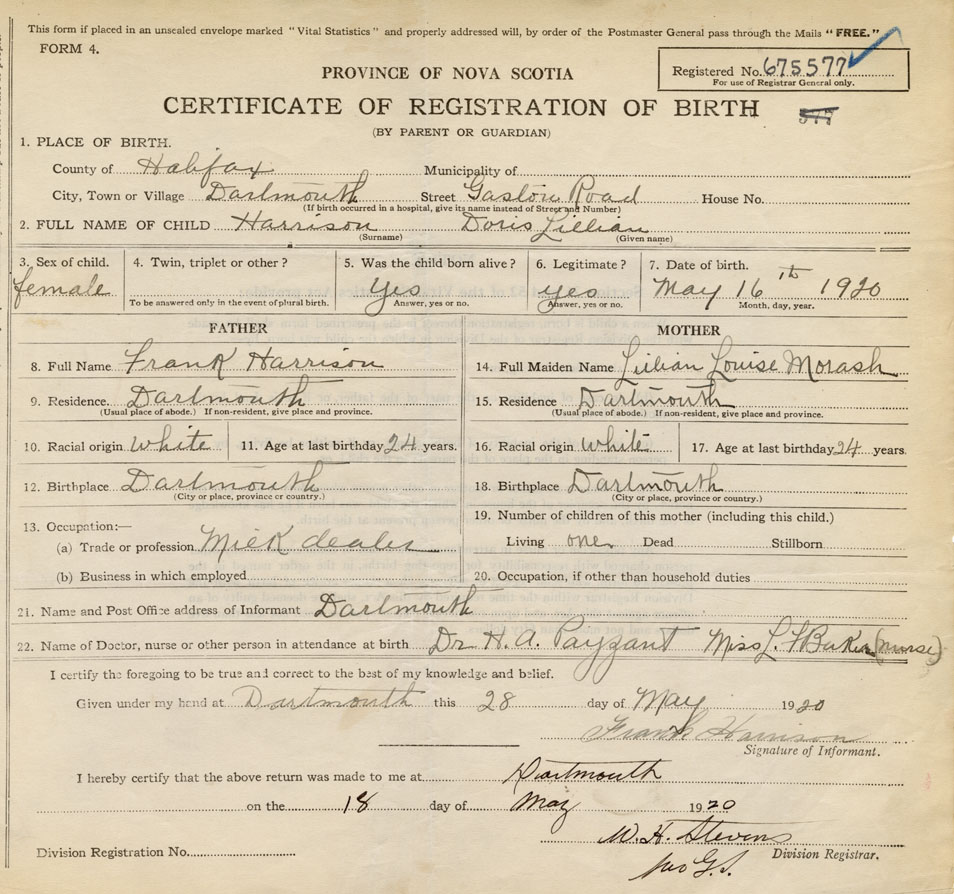 This form if placed in an unsealed envelope marked "Vital Statistics" and properly addressed will, by order of the Postmaster General pass through the Mails "FREE."
FORM 4.
Registered No. 675577
For use of Registrar General only.
PROVINCE OF NOVA SCOTIA
CERTIFICATE OF REGISTRATION OF BIRTH
577
(BY PARENT OR GUARDIAN)
1. PLACE OF BIRTH.
County of Halifax Municipality of
City, Town or Village Dartmouth Street Gaston Road House No.
(If birth occurred in a hospital, give its name instead of Street and Number)
2. FULL NAME OF CHILD Harrison Doris Lillian
(Surname) (Given name)
3. Sex of child. 4. Twin, triplet or other? 5. Was the child born alive? 6. Legitimate? 7. Date of birth.
female Yes yes May 16th 1920
To be answered only in the event of plural birth. Answer, yes or no. Answer, yes or no. Month, day, year.
FATHER MOTHER
8. Full Name Frank Harrison 14. Full Maiden Name Lillian Louise Morash
9. Residence Dartmouth 15. Residence Dartmouth
(Usual place of abode.) If non-resident, give place and province. (Usual place of abode.) If non-resident, give place and province.
10. Racial origin White 11. Age at last birthday 24 years. 16. Racial origin White 17. Age at last birthday 24 years.
12. Birthplace Dartmouth 18. Birthplace Dartmouth
(City or place, province or country.) (City or place, province or country.)
13. Occupation:— 19. Number of children of this mother (including this child.)
(a) Trade or profession Milk dealer Living one Dead Stillborn
(b) Business in which employed 20. Occupation, if other than household duties
21. Name and Post Office address of Informant Dartmouth
22. Name of Doctor, nurse or other person in attendance at birth Dr H. A. Payzant Miss L. F Baker (nurse)
I certify the foregoing to be true and correct to the best of my knowledge and belief.
Given under my hand at Dartmouth this 28 day of May 1920
Frank Harrison
Signature of Informant.
I hereby certify that the above return was made to me at Dartmouth
on the 18 day of May 1920
W. H. Stevens
Division Registration No. Division Registrar.